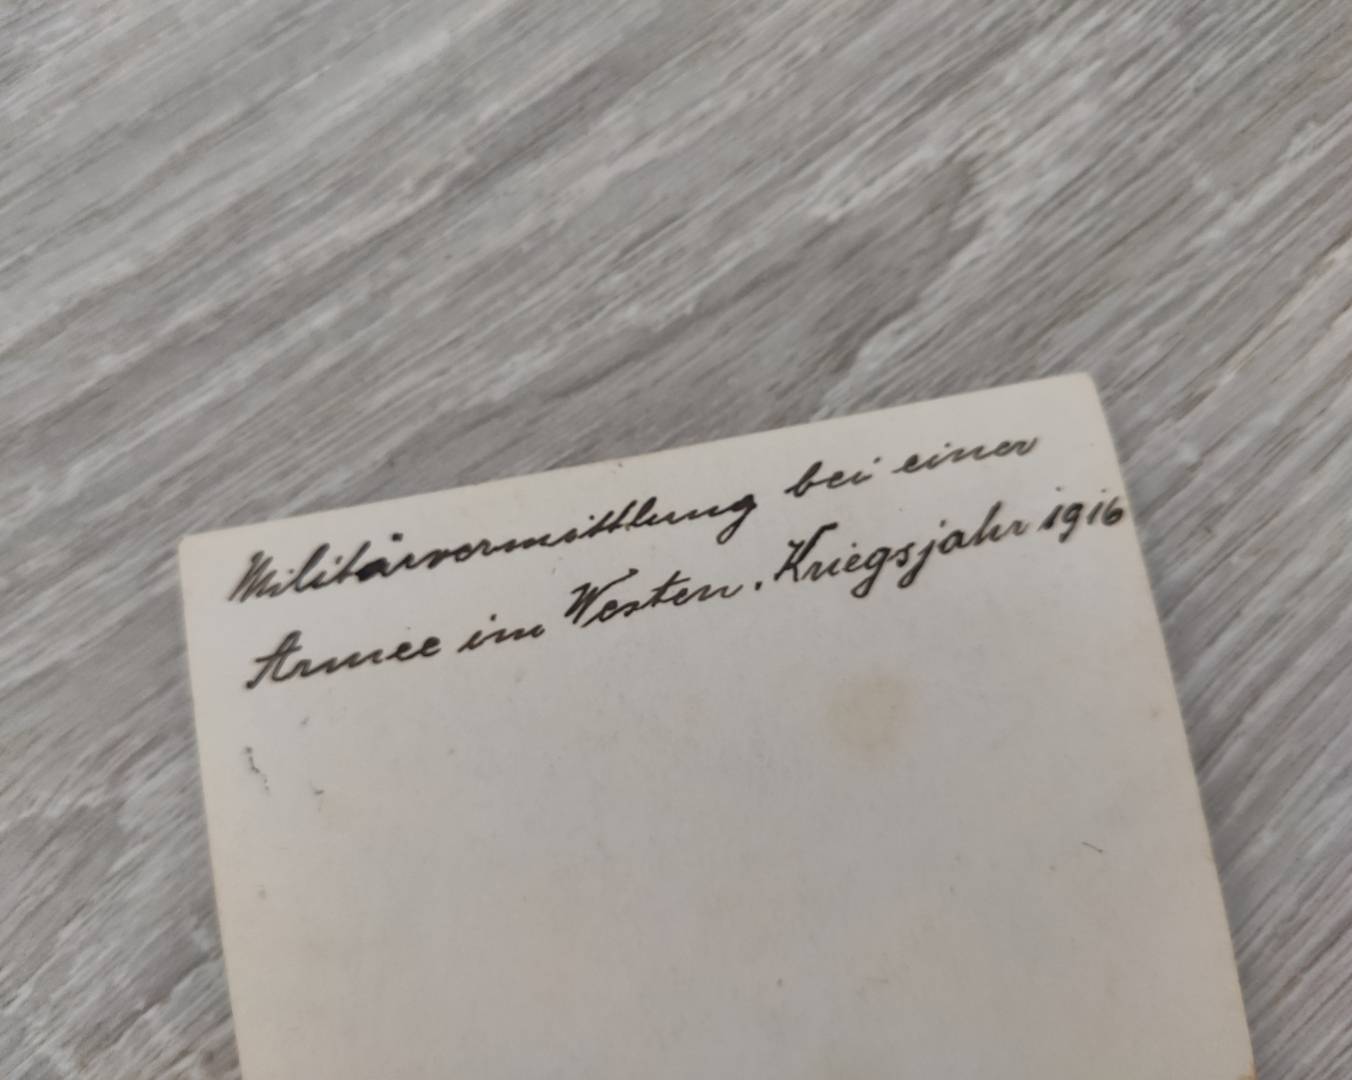 Militärvermittlung bei einer
Armee im Westen. Kriegsjahr 1916